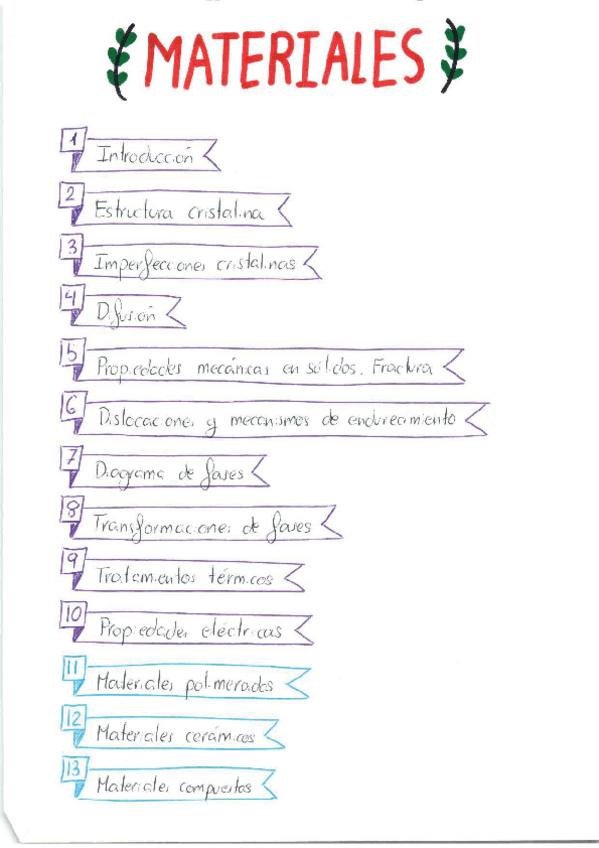 MATERIALES
1 Introducción
2 Estructura cristalina
3 Imperfecciones cristalinas
4 Difusión
5 Propiedades mecánicas en sólidos. Fractura
6 Dislocaciones y mecanismos de endurecimiento
7 Diagrama de fases
8 Transformaciones de fases
9 Tratamientos térmicos
10 Propiedades eléctricas
11 Materiales polimerados
12 Materiales cerámicos
13 Materiales compuestos